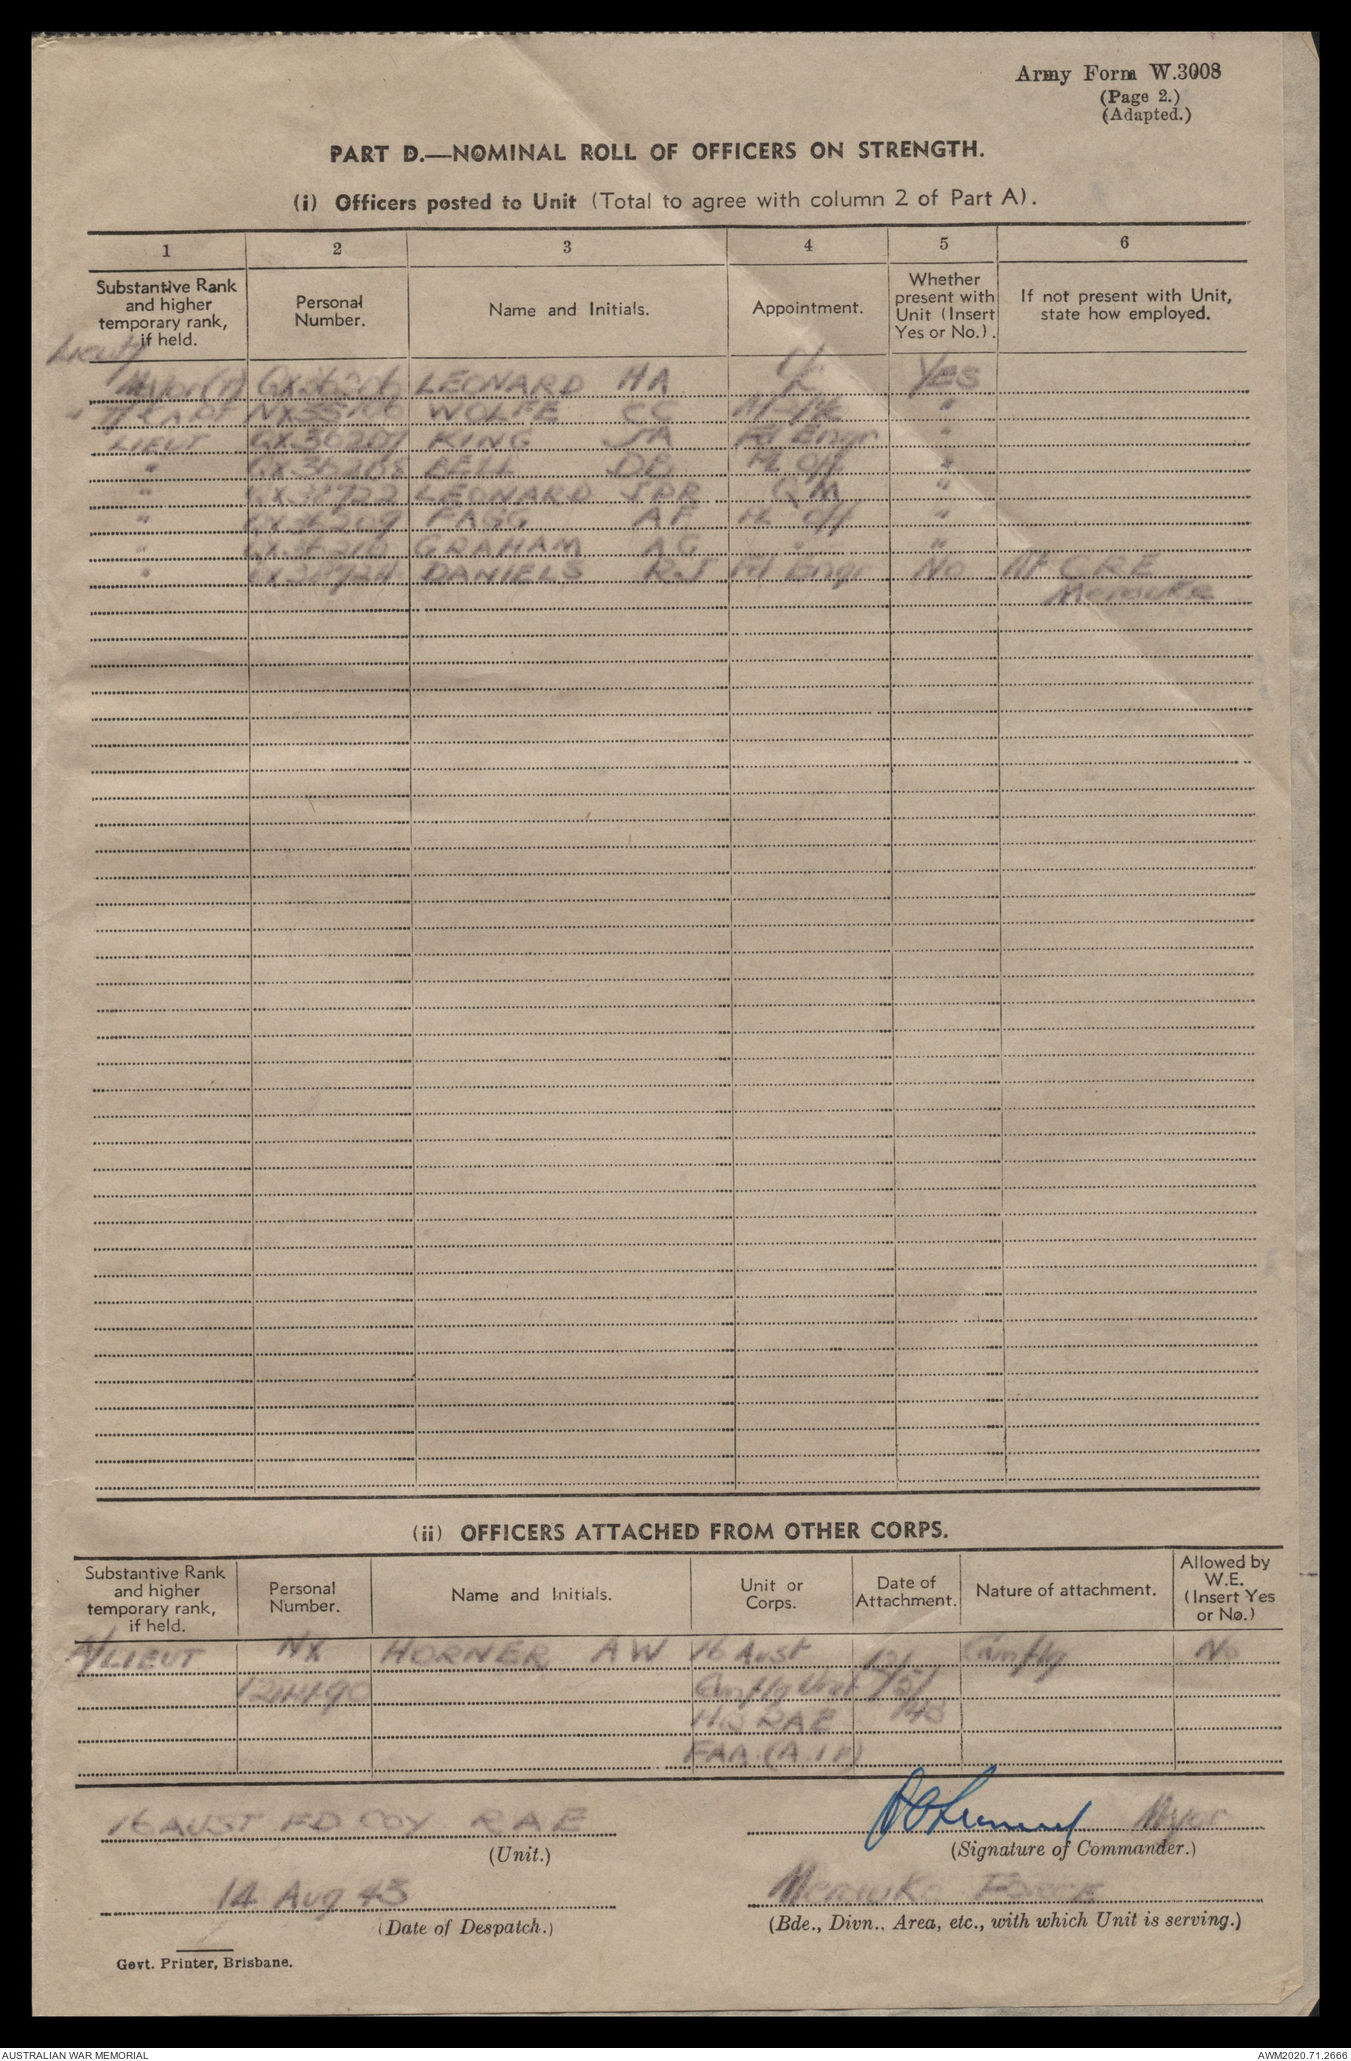 Army Form W.3008
(Page 2.)
(Adapted.)
PART D.—NOMINAL ROLL OF OFFICERS ON STRENGTH.
(i) Officers posted to Unit (Total to agree with column 2 of Part A).
1 2 3 4 5 6
Substantive Rank and higher temporary rank, if held. Personal Number. Name and Initials. Appointment. Whether present with Unit (Insert Yes or No.). If not present with Unit, state how employed.
Lieut/
Major (T) QX36206 LEONARD HA Yes
" T/CAPT NX35106 WOLFE CC "
LIEUT QX36207 KING JA Fd Engr "
" QX36208 BELL DB Pl Off "
" LEONARD JDR QM "
" QX36209 FAGG AF Pl Off "
" QX36210 GRAHAM AG " "
" DANIELS RJ Fd Engr No At CRE
Merauke
(ii) OFFICERS ATTACHED FROM OTHER CORPS.
Substantive Rank and higher temporary rank, if held. Personal Number. Name and Initials. Unit or Corps. Date of Attachment. Nature of attachment. Allowed by W.E. (Insert Yes or No.)
A/LIEUT NX HORNER AW 16 Aust 12/ Camflg No
124490 Camflg Unit 5/
HQ RAE /43
FAA (A.I.F)
16 AUST FD COY RAE Major
(Unit.) (Signature of Commander.)
14 Aug 43 Merauke Force
(Date of Despatch.) (Bde., Divn., Area, etc., with which Unit is serving.)
Govt. Printer, Brisbane.
AUSTRALIAN WAR MEMORIAL AWM2020.71.2666